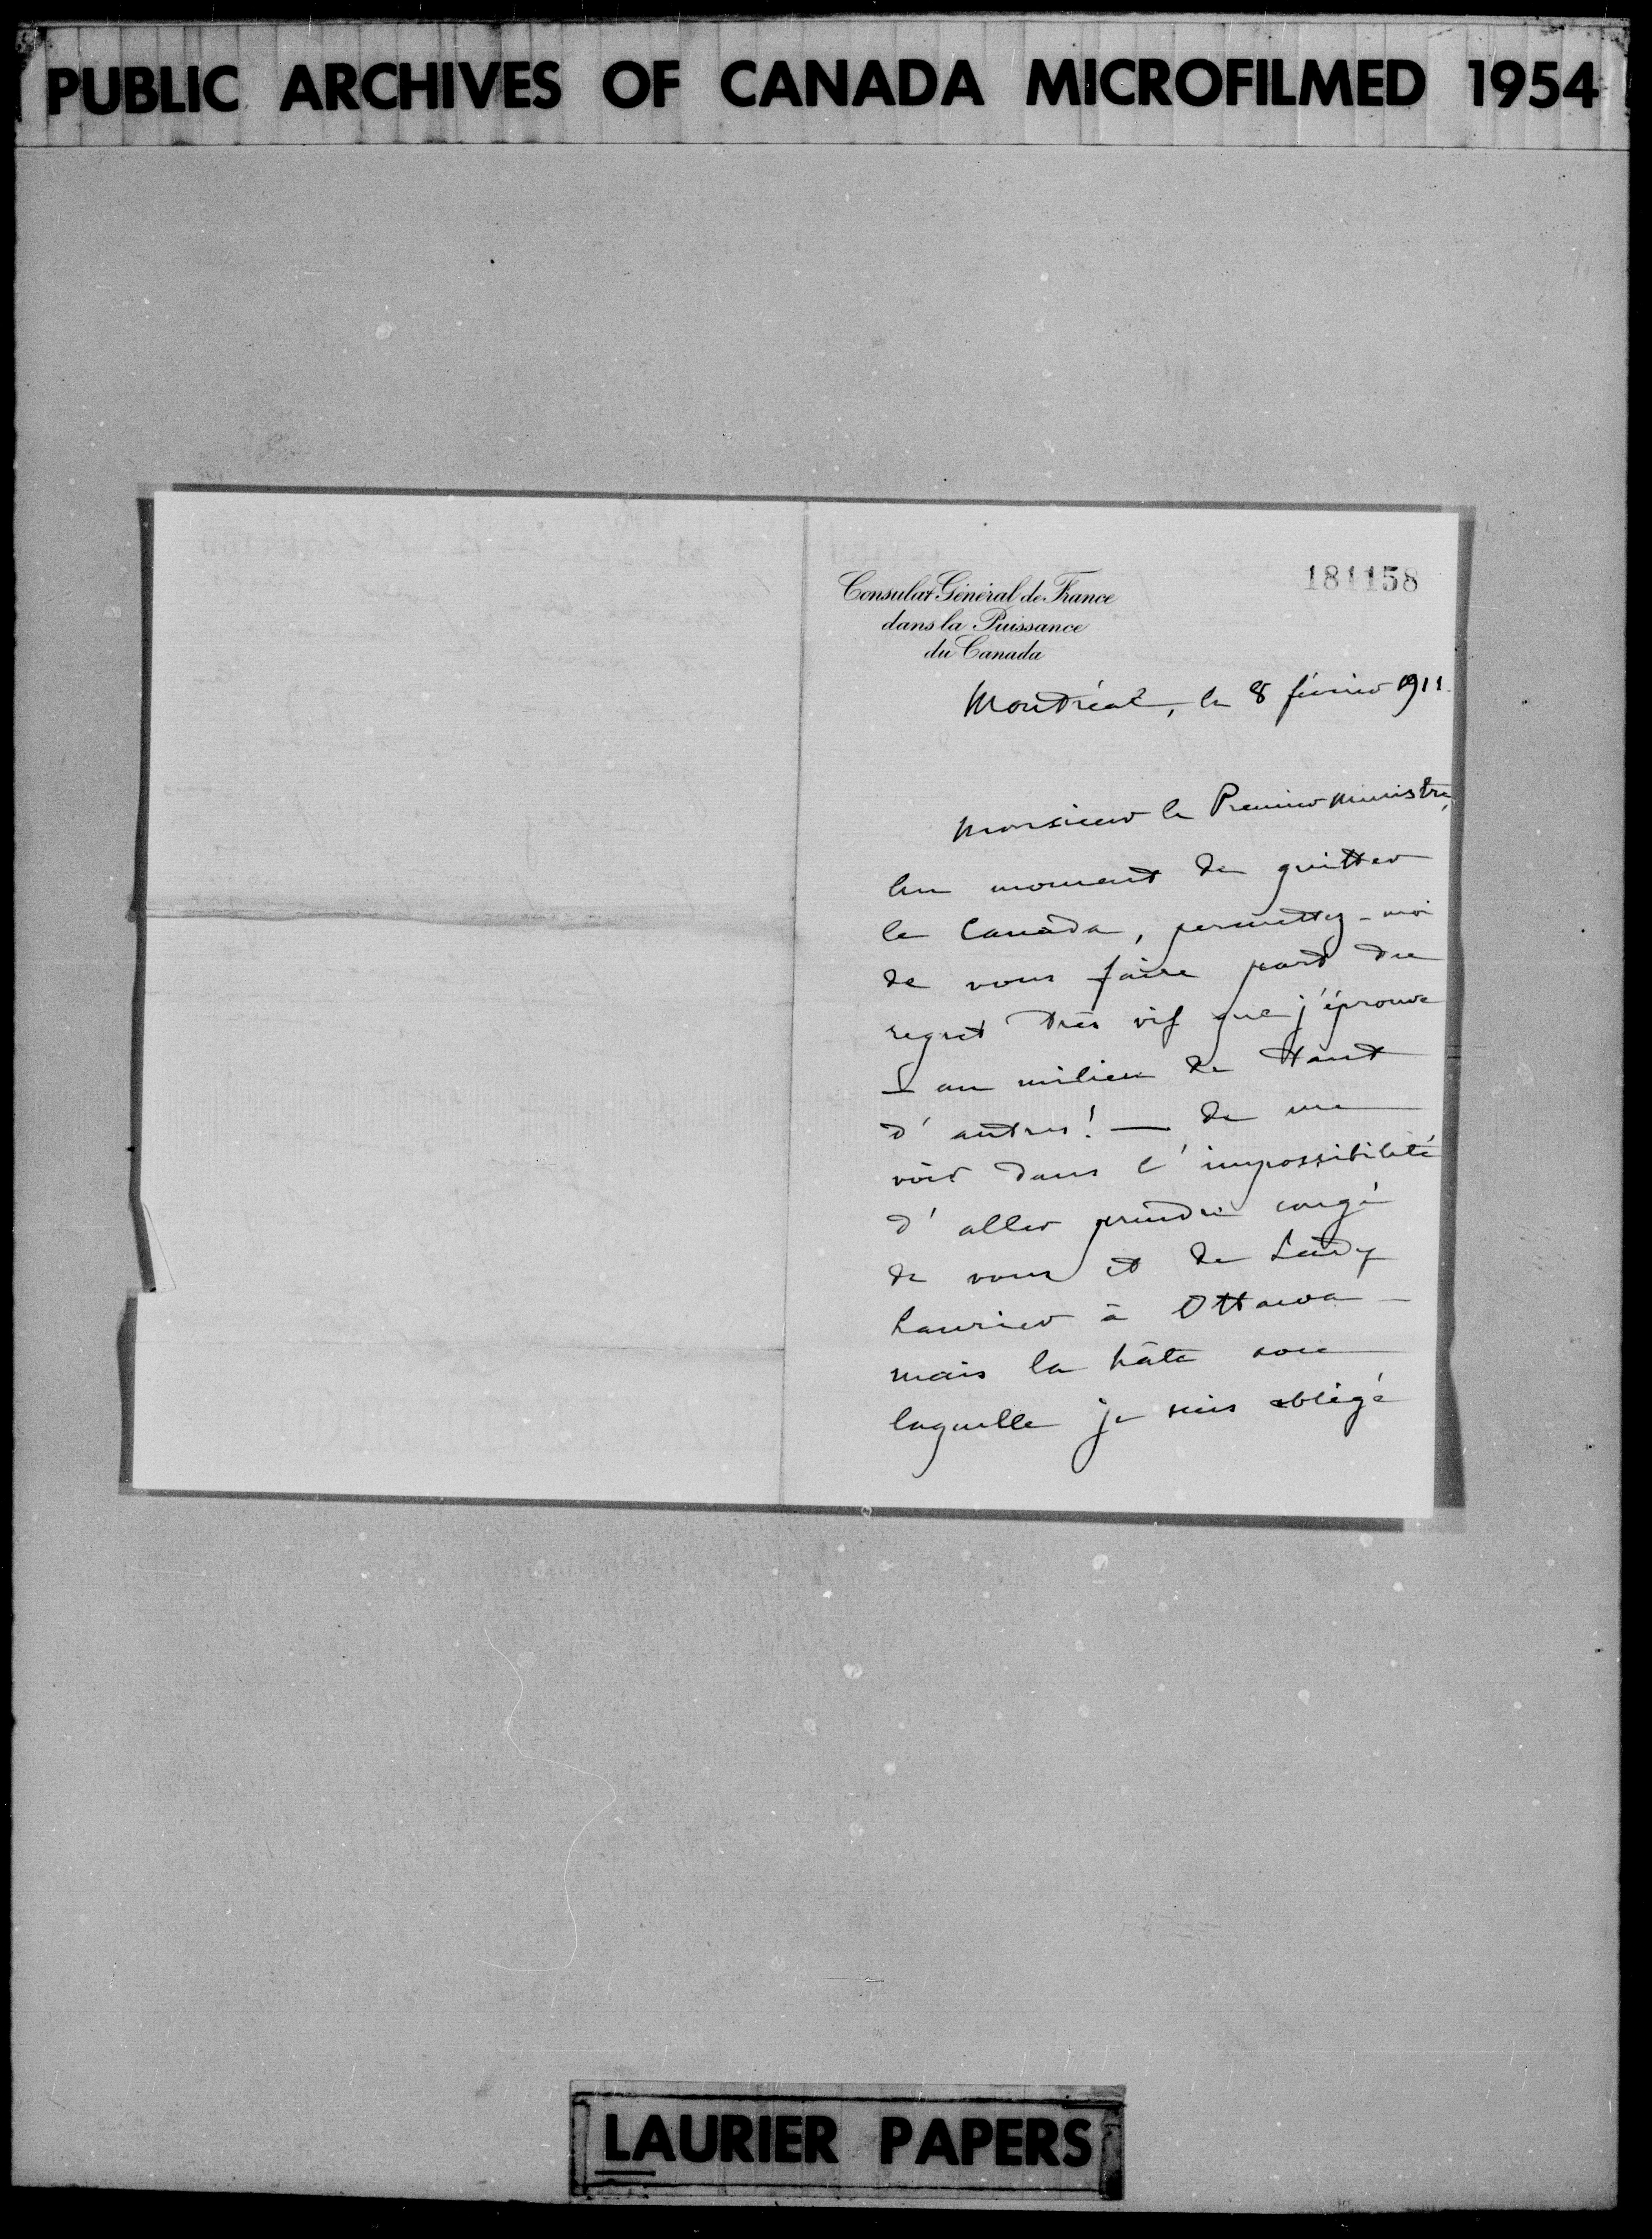 PUBLIC ARCHIVES OF CANADA MICROFILMED 1954
181158
Consulat Général de France
dans la Puissance
du Canada
Montréal, le 8 février 1911.
Monsieur le Premier Ministre,
Au moment de quitter
le Canada, permettez-moi
de vous faire part du
regret très vif que j'éprouve
— au milieu de tant
d'autres! — de me
voir dans l'impossibilité
d'aller prendre congé
de vous et de Lady
Laurier à Ottawa —
mais la hâte avec
laquelle je suis obligé
LAURIER PAPERS